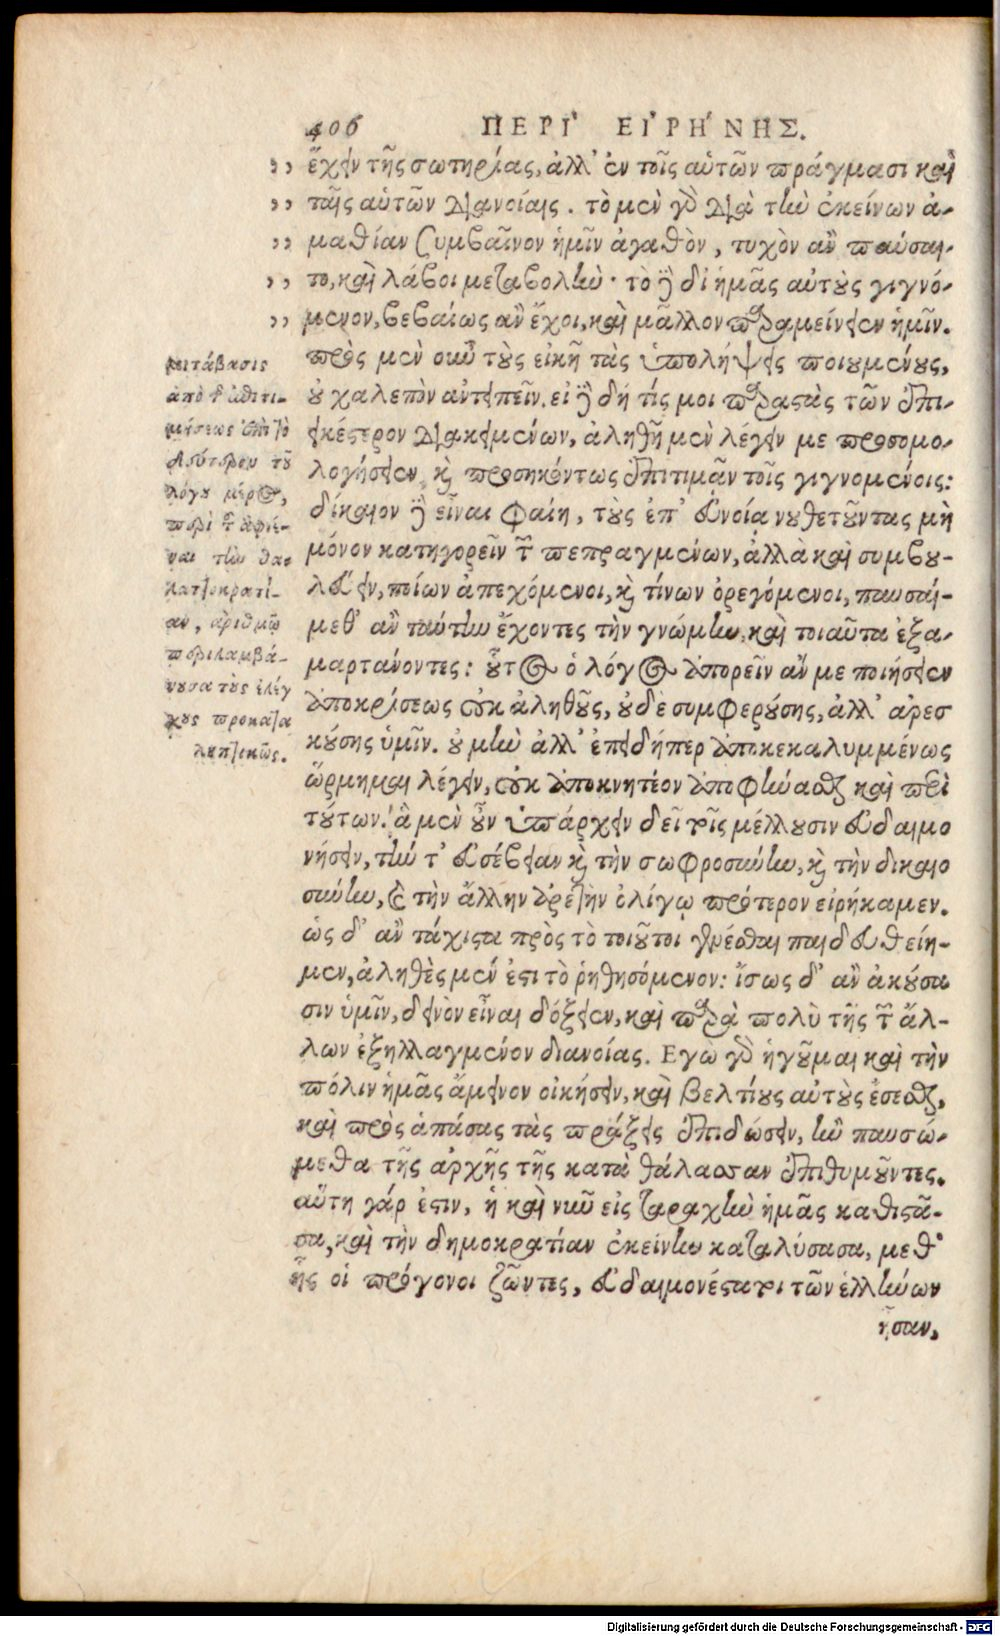 406 ΠΕΡΙ' ΕΙ'ΡΗ'ΝΗΣ.
,, ἔχειν τῆς σωτηρίας, ἀλλ' ἐν τοῖς αὑτῶν πράγμασι καὶ
,, ταῖς αὑτῶν διανοίαις. τὸ μὲν γὸ διὰ τὴν ἐκείνων ἀ-
,, μαθίαν συμβαῖνον ἡμῖν ἀγαθὸν, τυχὸν ἂν παύσαι-
,, το, καὶ λάβοι μεταβολήν· τὸ δὲ δι' ἡμᾶς αὐτοὺς γιγνό-
,, μενον, βεβαίως ἂν ἔχοι, καὶ μᾶλλον παραμείνειεν ἡμῖν.
πρὸς μὲν οὖν τοὺς εἰκῆ τὰς ὑπολήψεις ποιουμένους,
οὐ χαλεπὸν ἀντειπεῖν. εἰ δὲ δή τίς μοι παραστὰς τῶν ἐπι-
εικέστερον διακειμένων, ἀληθῆ μὲν λέγειν με προσομο-
λογήσειεν, καὶ προσηκόντως ἐπιτιμᾷν τοῖς γιγνομένοις:
δίκαιον δὲ εἶναι φαίη, τοὺς ἐπ' εὐνοίᾳ νουθετοῦντας μὴ
μόνον κατηγορεῖν τῶν πεπραγμένων, ἀλλὰ καὶ συμβου-
λεύειν, ποίων ἀπεχόμενοι, καὶ τίνων ὀρεγόμενοι, παυσαί-
μεθ' ἂν ταύτην ἔχοντες τὴν γνώμην, καὶ τοιαῦτα ἐξα-
μαρτάνοντες: οὗτος ὁ λόγος ἀπορεῖν ἄν με ποιήσειεν
ἀποκρίσεως οὐκ ἀληθοῦς, οὐδὲ συμφερούσης, ἀλλ' ἀρεσ
κούσης ὑμῖν. οὐ μὴν ἀλλ' ἐπειδήπερ ἀποκεκαλυμμένως
ὥρμημαι λέγειν, οὐκ ἀποκνητέον ἀποφήνασθαι καὶ περὶ
τούτων. ἃ μὲν οὖν ὑπάρχειν δεῖ τοῖς μέλλουσιν εὐδαιμο
νήσειν, τήν τ' εὐσέβειαν καὶ τὴν σωφροσύνην, καὶ τὴν δικαιο
σύνην, καὶ τὴν ἄλλην ἀρετὴν ὀλίγῳ πρότερον εἰρήκαμεν.
ὡς δ' ἂν τάχιστα πρὸς τὸ τοιοῦτοι γενέσθαι παιδευθείη-
μεν, ἀληθὲς μέν ἐστι τὸ ῥηθησόμενον: ἴσως δ' ἂν ἀκούσα
σιν ὑμῖν, δεινὸν εἶναι δόξειεν, καὶ παρὰ πολὺ τῆς τῶν ἄλ-
λων ἐξηλλαγμένον διανοίας. Εγὼ γὸ ἡγοῦμαι καὶ τὴν
πόλιν ἡμᾶς ἄμεινον οἰκήσειν, καὶ βελτίους αὐτοὺς ἔσεσθαι,
καὶ πρὸς ἁπάσας τὰς πράξεις ἐπιδώσειν, ἢν παυσώ-
μεθα τῆς ἀρχῆς τῆς κατὰ θάλασσαν ἐπιθυμοῦντες.
αὕτη γάρ ἐστιν, ἡ καὶ νῦν εἰς ταραχὴν ἡμᾶς καθιστᾶ-
σα, καὶ τὴν δημοκρατίαν ἐκείνην καταλύσασα, μεθ'
ἧς οἱ πρόγονοι ζῶντες, εὐδαιμονέστατοι τῶν ἑλλήνων
ἦσαν,
μετάβασις
ἀπὸ τῆς ἐπιτι-
μήσεως ἐπὶ τὸ
δεύτερον τοῦ
λόγου μέρος,
περὶ τοῦ ἀφιέ-
ναι τὴν θα-
λαττοκρατί-
αν, ἀριθμῷ
περιλαμβά-
νουσα τοὺς ἐλέγ
χους προκατα
ληπτικῶς.